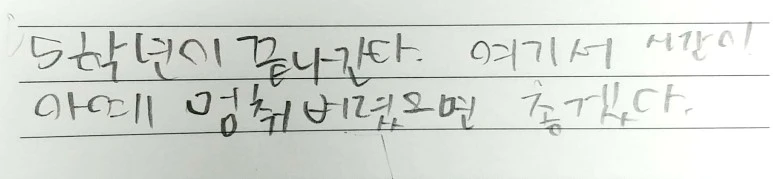 5학년이 끝나간다. 여기서 시간이
아예 멈춰버렸으면 좋겠다.